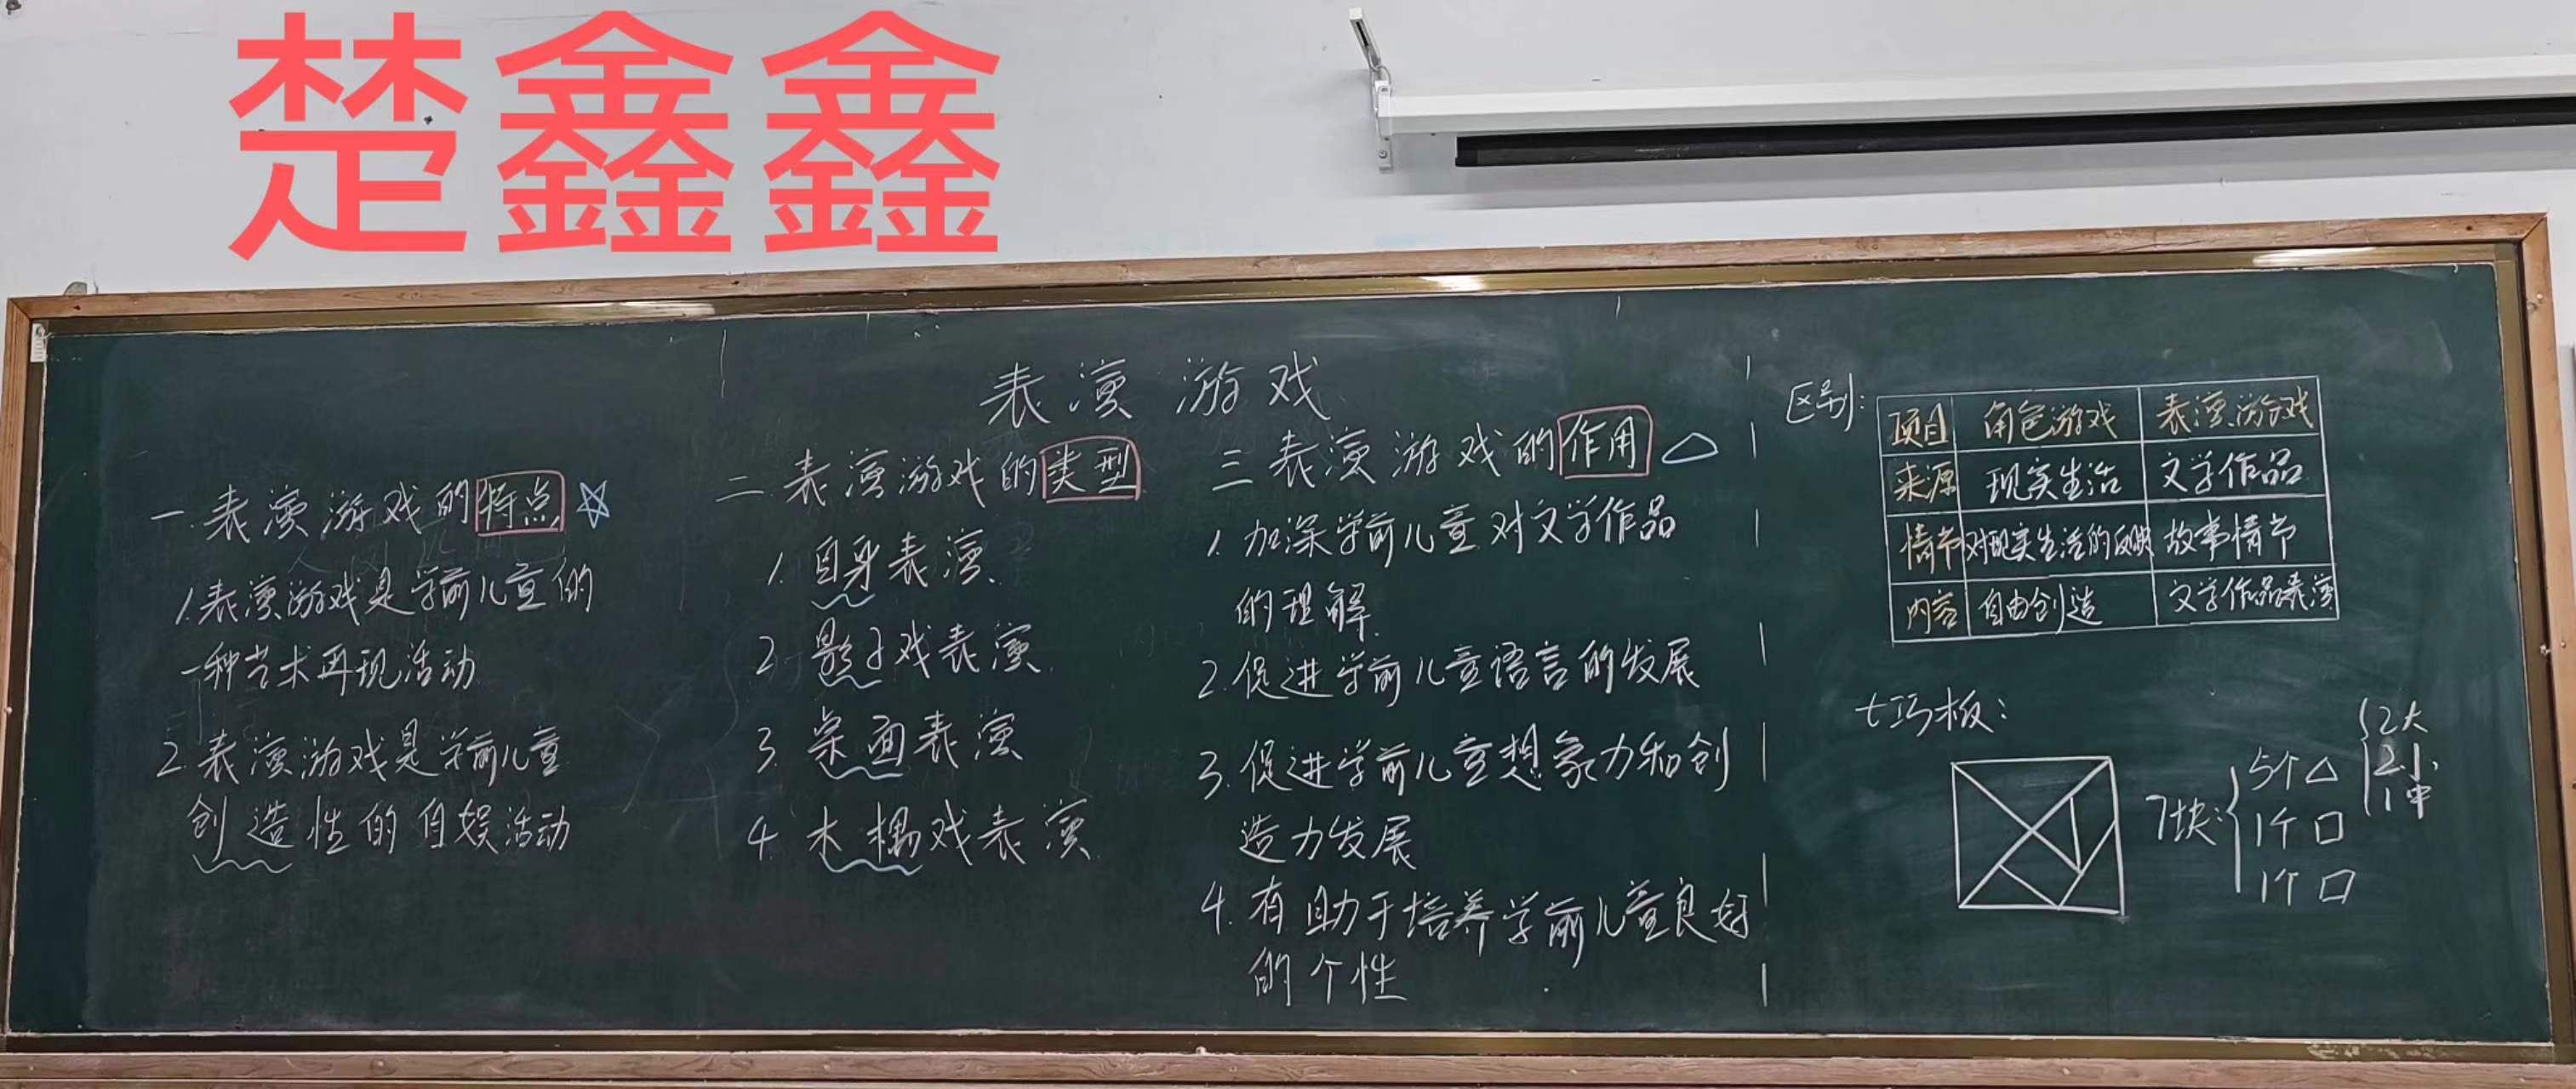 楚鑫鑫
表演游戏
一.表演游戏的特点
1.表演游戏是学前儿童的
一种艺术再现活动
2.表演游戏是学前儿童
创造性的自娱活动
二.表演游戏的类型
1.自身表演
2.影子戏表演
3.桌面表演
4.木偶戏表演
三表演游戏的作用
1.加深学前儿童对文学作品
的理解
2.促进学前儿童语言的发展
3.促进学前儿童想象力和创
造力发展
4.有助于培养学前儿童良好
的个性
区别:
项目 角色游戏 表演游戏
来源 现实生活 文学作品
情节 对现实生活的反映 故事情节
内容 自由创造 文学作品表演
七巧板:
7块:
5个△
2大
2小
1中
1个□
1个▱